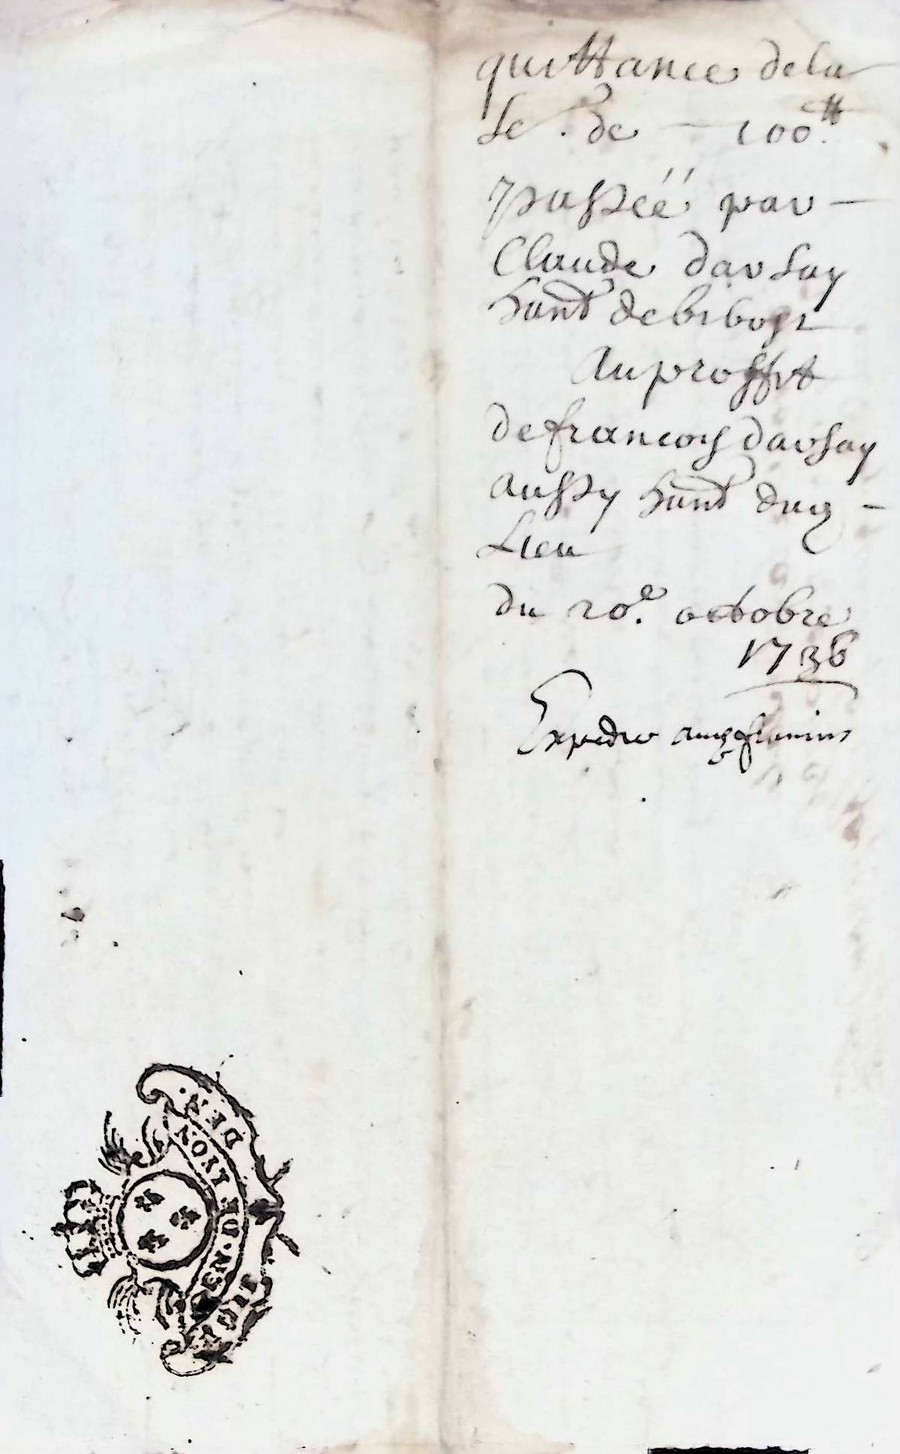 quittance dela
Se. de — 100ᵗᵗ.
passéé par —
Claude darsay
hant debibost
au proffit
de francois darsay
aussy hant dud —
Lieu
du 20.e octobre
1736
Expedie
LYON